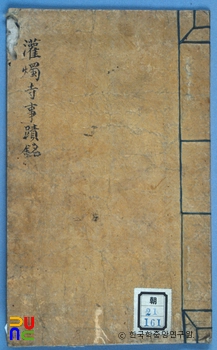 灌燭寺事蹟銘
朝
21
161
PUC
© 한국학중앙연구원